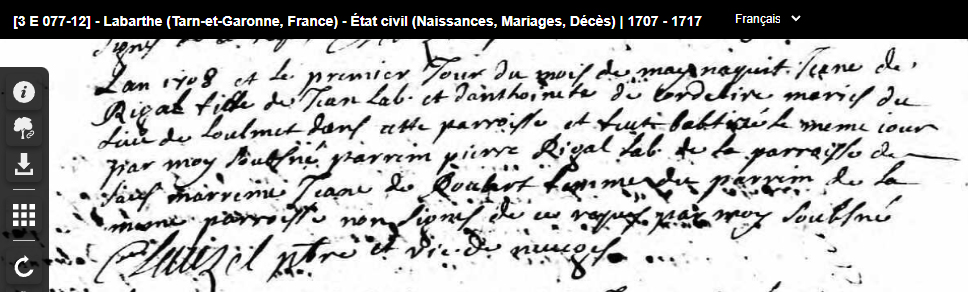 [3 E 077-12] - Labarthe (Tarn-et-Garonne, France) - État civil (Naissances, Mariages, Décès) | 1707 - 1717
Français
Lan 1708 et le premier Jour du mois de may naquit Jeane de
Rigal fille de Jean Lab. et danthoinete de Cordelire mariés du
lieu de Loulmet dans cette parroisse et fut baptizée le meme jour
par moy soubsné parrein pierre Rigal Lab. de la parroisse de
marreine Jeane de femme du parrein de la
meme parroisse non signés de ce requis par moy soubsné
ptre et vic. de